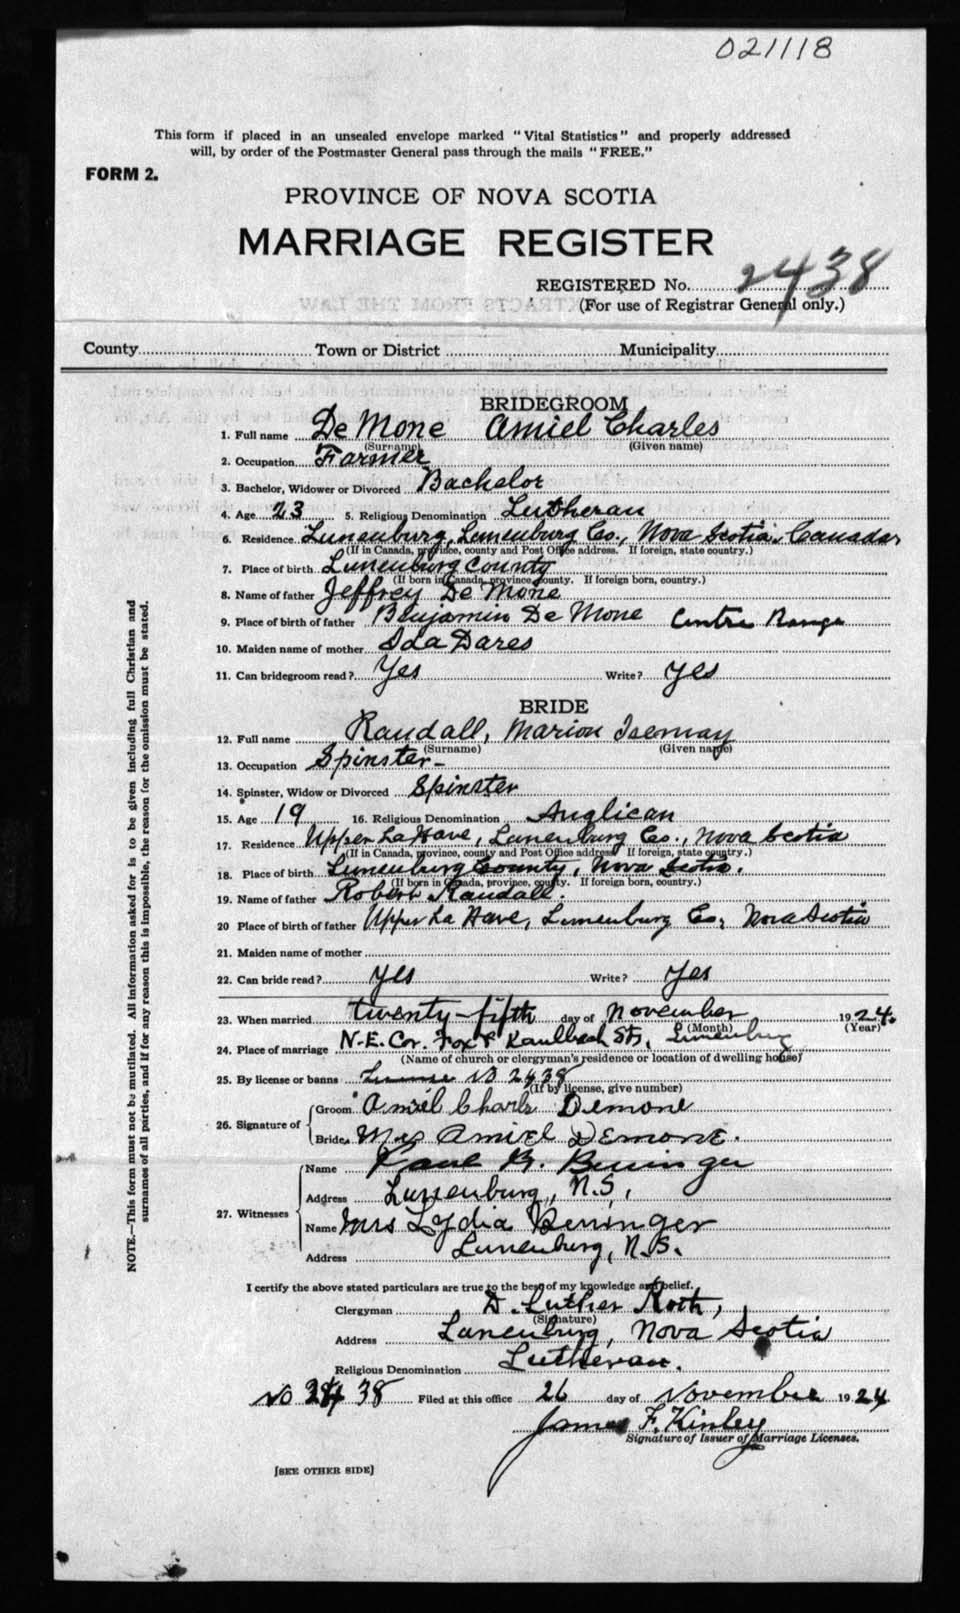 021118
This form if placed in an unsealed envelope marked "Vital Statistics" and properly addressed
will, by order of the Postmaster General pass through the mails "FREE."
FORM 2.
PROVINCE OF NOVA SCOTIA
MARRIAGE REGISTER
REGISTERED No. 2438
(For use of Registrar General only.)
County Town or District Municipality
BRIDEGROOM
1. Full name De Mone Amiel Charles
(Surname) (Given name)
2. Occupation Farmer
3. Bachelor, Widower or Divorced Bachelor
4. Age 23 5. Religious Denomination Lutheran
6. Residence Lunenburg, Lunenburg Co., Nova Scotia, Canada
(If in Canada, province, county and Post Office address. If foreign, state country.)
7. Place of birth Lunenburg County
(If born in Canada, province, county. If foreign born, country.)
8. Name of father Jeffrey De Mone
9. Place of birth of father Benjamin De Mone Centre Range
10. Maiden name of mother Ida Dares
11. Can bridegroom read? Yes Write? yes
BRIDE
12. Full name Randall, Marion Isemay
(Surname) (Given name)
13. Occupation Spinster-
14. Spinster, Widow or Divorced Spinster
15. Age 19 16. Religious Denomination Anglican
17. Residence Upper LaHave, Lunenburg Co., Nova Scotia
(If in Canada, province, county and Post Office address If foreign, state country.)
18. Place of birth Lunenburg County, Nova Scotia.
(If born in Canada, province, county. If foreign born, country.)
19. Name of father Robert Randall.
20 Place of birth of father Upper La Have, Lunenburg Co., Nova Scotia
21. Maiden name of mother
22. Can bride read? yes Write? yes
23. When married twenty-fifth day of November 1924.
(Month) (Year)
24. Place of marriage N-E. Cor. Fox & Kaulbach Sts, Lunenburg
(Name of church or clergyman's residence or location of dwelling house)
25. By license or banns License No 2438
(If by license, give number)
26. Signature of
Groom Amiel Charls Demone
Bride Mrs Amiel DEmone.
27. Witnesses
Name B. Beninger
Address Lunenburg, N.S,
Name Mrs Lydia Beninger
Address Lunenburg, N.S.
I certify the above stated particulars are true to the best of my knowledge and belief.
Clergyman D. Luther Roth,
(Signature)
Address Lunenburg, Nova Scotia
Religious Denomination Lutheran.
No 38 Filed at this office 26 day of November 1924
James F. Kinley
Signature of Issuer of Marriage Licenses.
[SEE OTHER SIDE]
NOTE.—This form must not be mutilated. All information asked for is to be given including full Christian and
surnames of all parties, and if for any reason this is impossible, the reason for the omission must be stated.